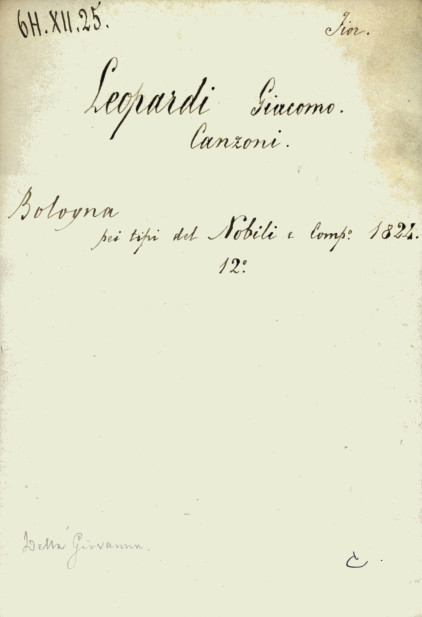 6H.XII.25.
Fior.
Leopardi Giacomo.
Canzoni.
Bologna
pei tipi del Nobili e Comp.º 1824.
12.º
Della Giovanna.
C.